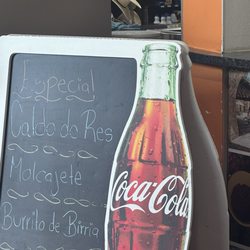 Especial
Caldo de Res
Molcajete
Burrito de Birria
Coca-Cola